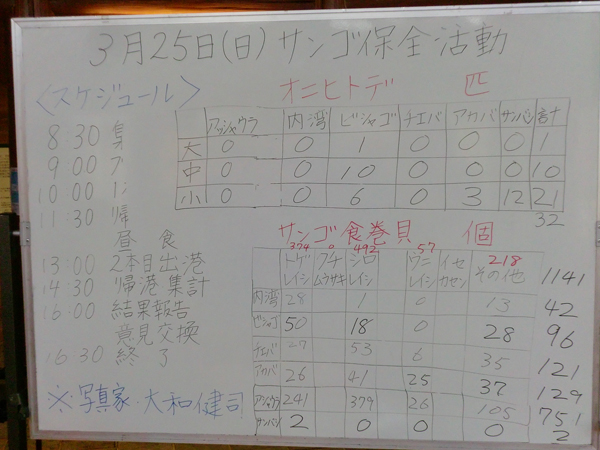 3月25日(日)サンゴ保全活動
<スケジュール>
8:30 集
9:00
10:00
11:30 帰
昼 食
13:00 2本目出港
14:30 帰港 集計
16:00 結果報告
意見交換
16:30 終了
※写真家 大和健司
オニヒトデ 匹
アッシャウラ 内湾 ビシャゴ チエバ アカバ サンバシ 合計
大 0 0 1 0 0 0 1
中 0 0 10 0 0 0 10
小 0 0 6 0 3 12 21
32
サンゴ食巻貝 個
374 0 492 57 218
トゲレイシ クチムラサキ シロレイシ ウニレイシ イセカセン その他 1141
内湾 28 1 0 13 42
ビシャゴ 50 18 0 28 96
チエバ 27 53 6 35 121
アカバ 26 41 25 37 129
アッシャウラ 241 379 26 105 751
サンバシ 2 0 0 0 2